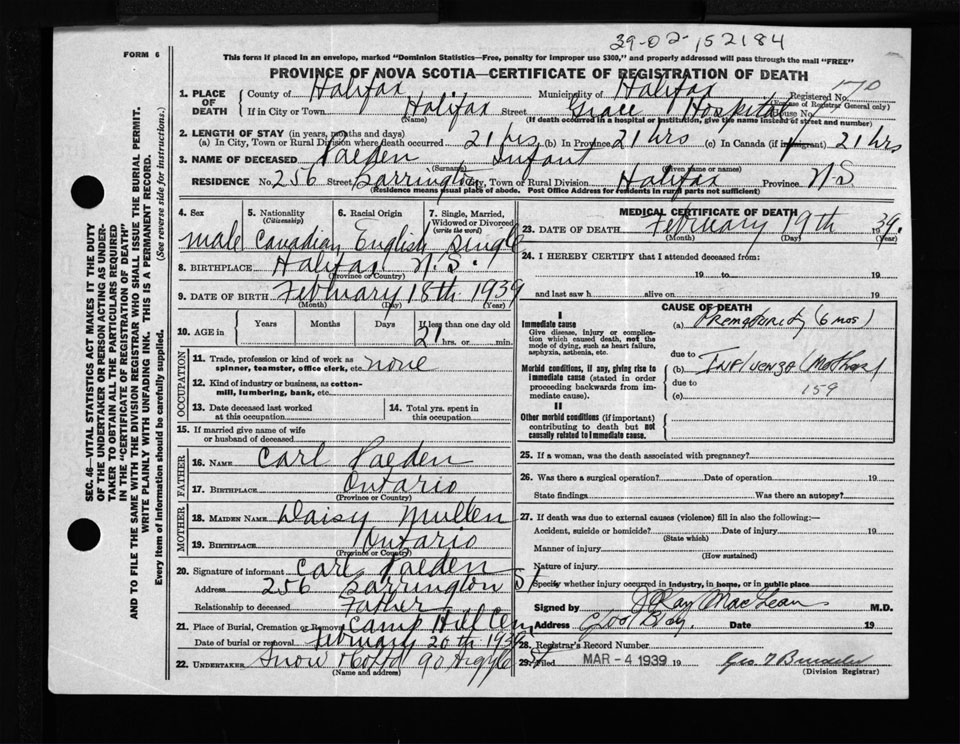 39-02-152184
FORM 6
This form if placed in an envelope, marked "Dominion Statistics—Free, penalty for improper use $300," and properly addressed will pass through the mail "FREE"
PROVINCE OF NOVA SCOTIA—CERTIFICATE OF REGISTRATION OF DEATH
170
1. PLACE OF DEATH County of Halifax Municipality of Halifax Registered No.
(For use of Registrar General only)
If in City or Town Halifax Street Grace Hospital House No.
(Name) (If death occurred in a hospital or institution, give the name instead of street and number)
2. LENGTH OF STAY (in years, months and days)
(a) In City, Town or Rural Division where death occurred 21 hrs (b) In Province 21 hrs (c) In Canada (if immigrant) 21 hrs
3. NAME OF DECEASED Paeden Infant
(Surname) (Given name or names)
RESIDENCE No. 256 Street Barrington City, Town or Rural Division Halifax Province N-S
(Residence means usual place of abode. Post Office Address for residents in rural parts not sufficient)
4. Sex 5. Nationality (Citizenship) 6. Racial Origin 7. Single, Married, Widowed or Divorced (write the word)
male Canadian English Single
8. BIRTHPLACE Halifax N.S.
(Province or Country)
9. DATE OF BIRTH February 18th 1939
(Month) (Day) (Year)
10. AGE in Years Months Days If less than one day old
21 hrs. or min.
OCCUPATION
11. Trade, profession or kind of work as spinner, teamster, office clerk, etc. none
12. Kind of industry or business, as cotton-mill, lumbering, bank, etc.
13. Date deceased last worked at this occupation
14. Total yrs. spent in this occupation
15. If married give name of wife or husband of deceased
FATHER
16. NAME Carl Paeden
17. BIRTHPLACE Ontario
(Province or Country)
MOTHER
18. MAIDEN NAME Daisy Mullen
19. BIRTHPLACE Ontario
(Province or Country)
20. Signature of informant Carl Paeden
Address 256 Barrington St
Relationship to deceased Father
21. Place of Burial, Cremation or Removal Camp Hill Cem
Date of burial or removal February 20th 1939
22. UNDERTAKER Snow & Co Ltd 90 Argyle St
(Name and address)
MEDICAL CERTIFICATE OF DEATH
23. DATE OF DEATH February 19th 1939.
(Month) (Day) (Year)
24. I HEREBY CERTIFY that I attended deceased from:
19 to 19
and last saw h alive on 19
CAUSE OF DEATH
I
Immediate cause (a) Prematurity (6 mos)
Give disease, injury or complication which caused death, not the mode of dying, such as heart failure, asphyxia, asthenia, etc.
due to
Morbid conditions, if any, giving rise to immediate cause (stated in order proceeding backwards from immediate cause).
(b) Influenza (Mother)
due to
(c) 159
II
Other morbid conditions (if important) contributing to death but not causally related to immediate cause.
25. If a woman, was the death associated with pregnancy?
26. Was there a surgical operation? Date of operation 19
State findings Was there an autopsy?
27. If death was due to external causes (violence) fill in also the following:—
Accident, suicide or homicide? Date of injury 19
(State which)
Manner of injury
(How sustained)
Nature of injury
Specify whether injury occurred in industry, in home, or in public place
Signed by J Ray MacLean M.D.
Address Date 19
28. Registrar's Record Number
29. Filed MAR - 4 1939 19
(Division Registrar)
SEC. 46—VITAL STATISTICS ACT MAKES IT THE DUTY
OF THE UNDERTAKER OR PERSON ACTING AS UNDER-
TAKER TO OBTAIN ALL THE PARTICULARS REQUIRED
IN THE "CERTIFICATE OF REGISTRATION OF DEATH"
AND TO FILE THE SAME WITH THE DIVISION REGISTRAR WHO SHALL ISSUE THE BURIAL PERMIT.
WRITE PLAINLY WITH UNFADING INK. THIS IS A PERMANENT RECORD.
Every item of information should be carefully supplied. (See reverse side for instructions.)